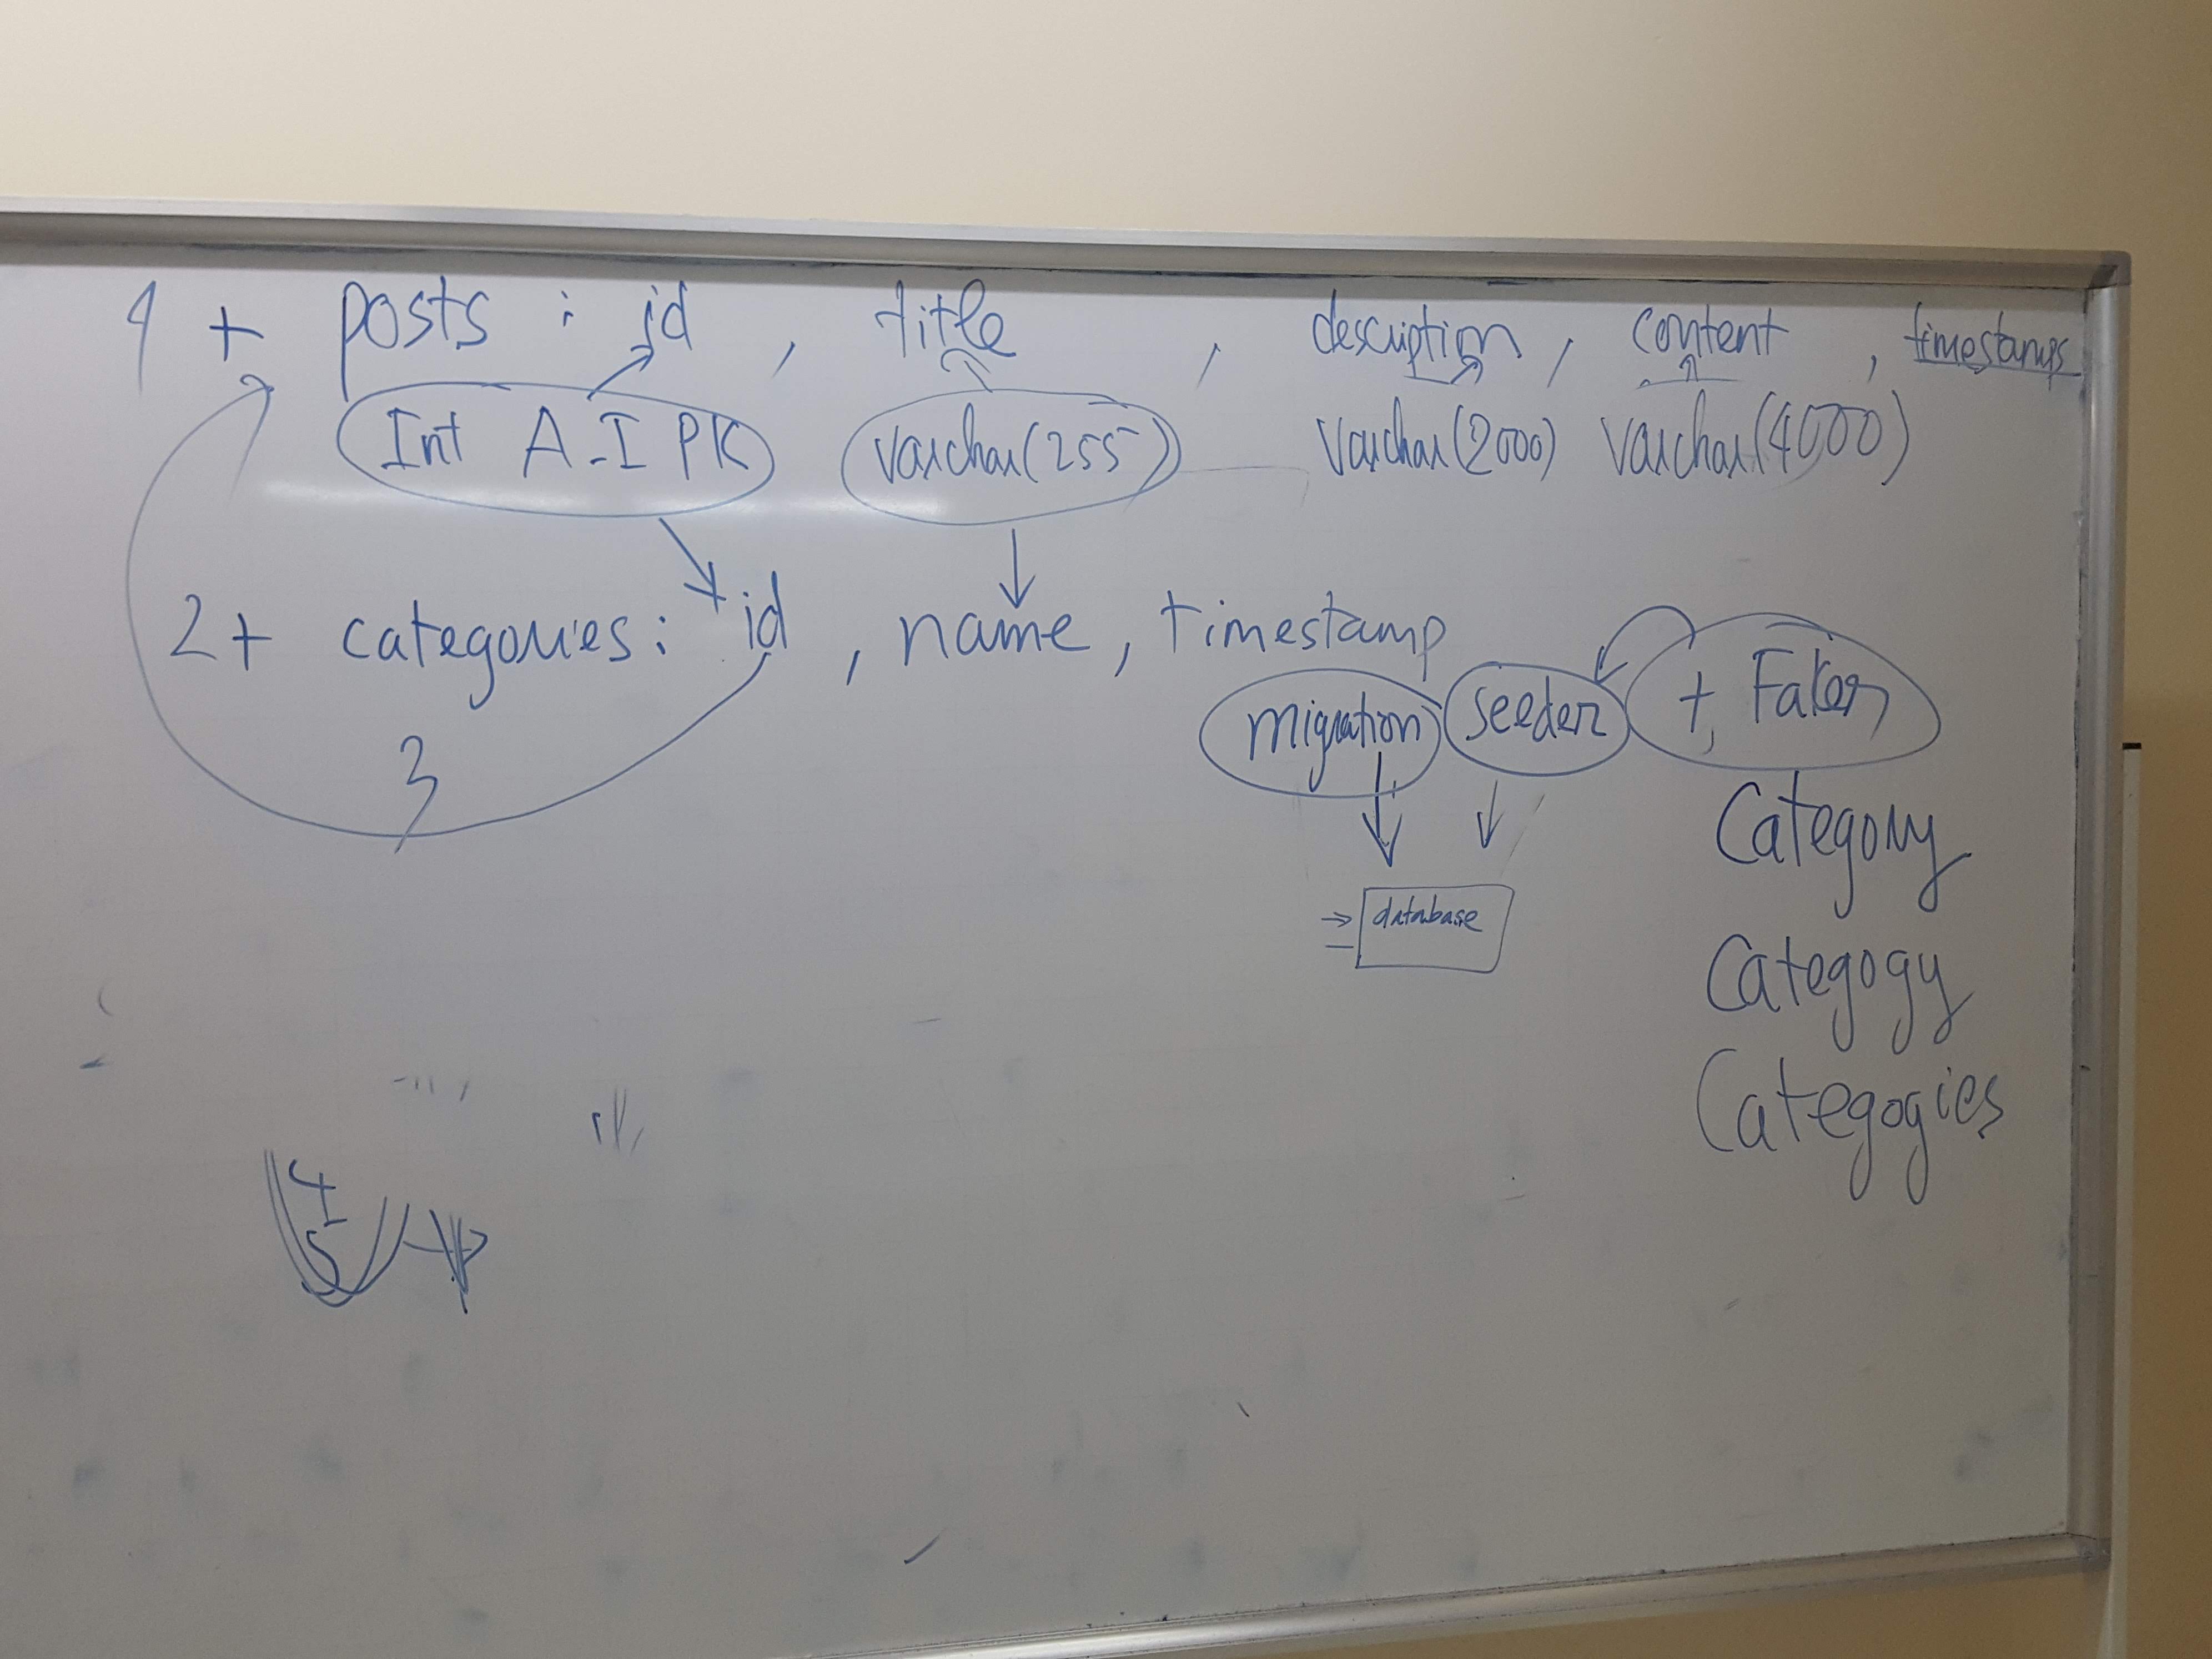 4 + posts : id , title , description , content , timestamps
Int A.I PK varchar(255) varchar(2000) varchar(4000)
2+ categories: id , name , timestamp
migration seeder + Faker
3
database
Category
Categogy
Categogies
4
5